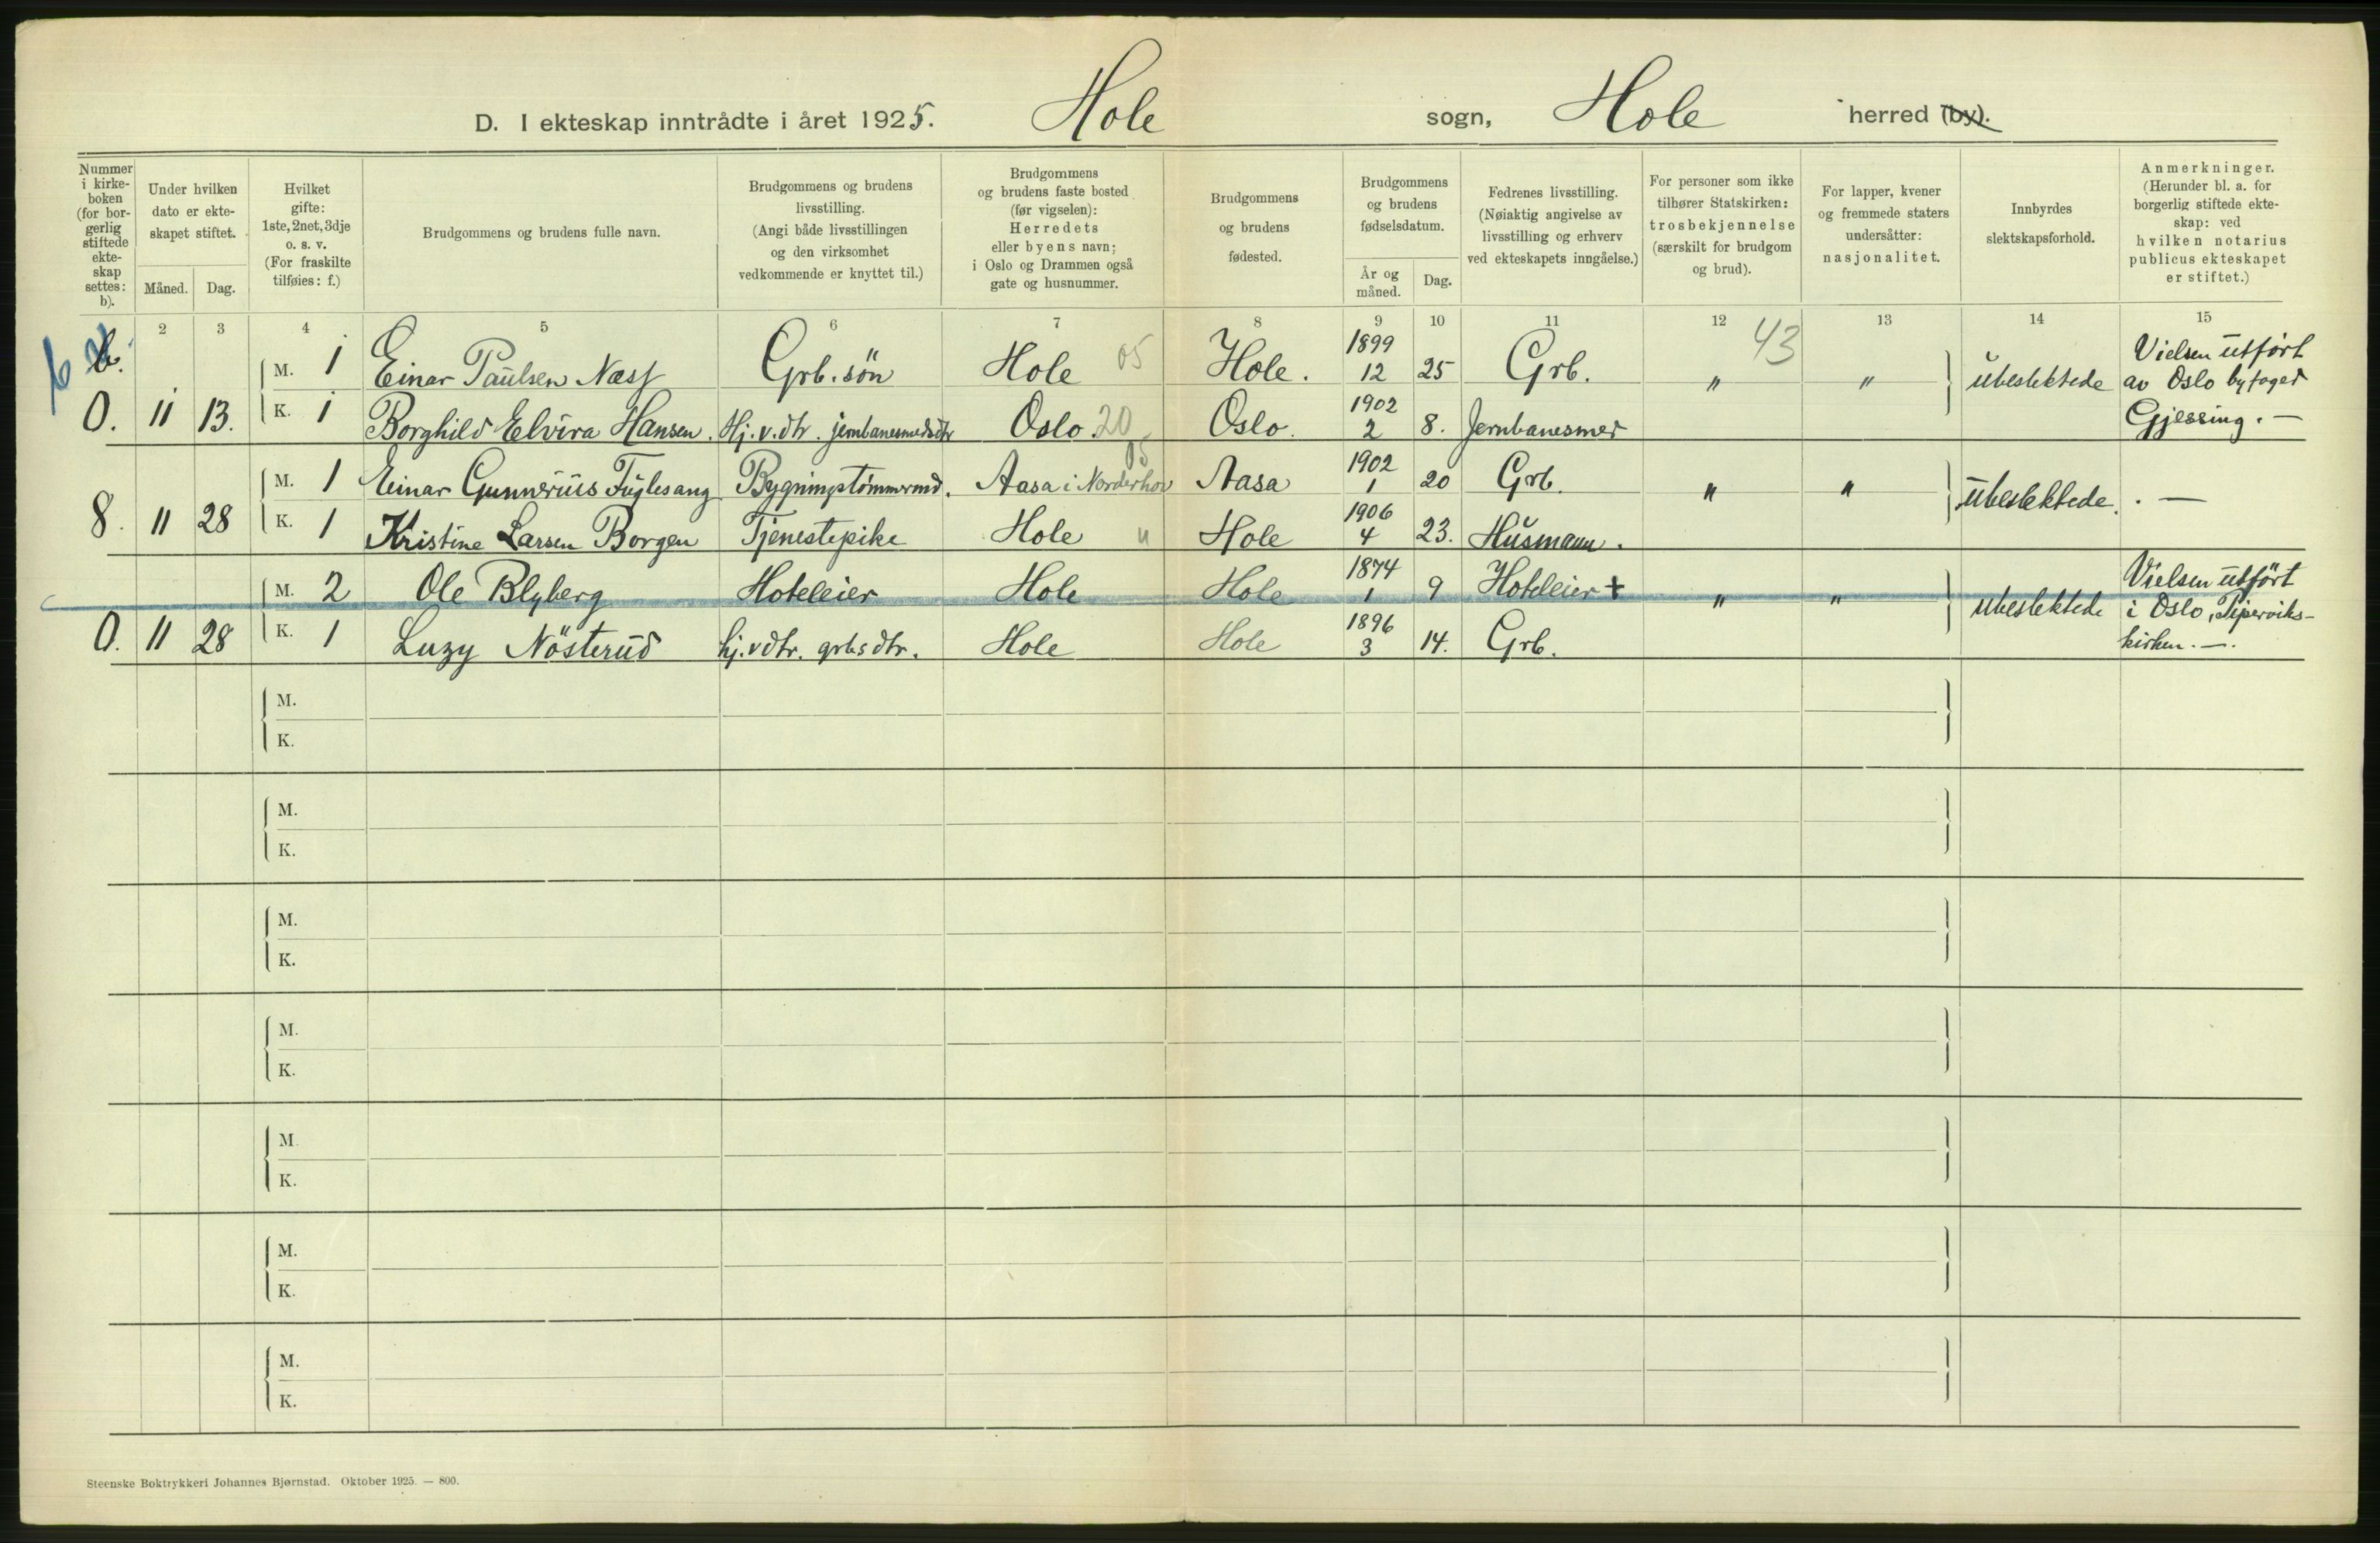 D. I ekteskap inntrådte i året 1925. Hole sogn, Hole herred (by).
Nummer i kirke-boken (for bor-gerlig stiftede ekte-skap settes: b).
Under hvilken dato er ekte-skapet stiftet.
Måned. Dag.
Hvilket gifte: 1ste, 2net, 3dje o. s. v. (For fraskilte tilføies: f.)
Brudgommens og brudens fulle navn.
Brudgommens og brudens livsstilling. (Angi både livsstillingen og den virksomhet vedkommende er knyttet til.)
Brudgommens og brudens faste bosted (før vigselen): Herredets eller byens navn; i Oslo og Drammen også gate og husnummer.
Brudgommens og brudens fødested.
Brudgommens og brudens fødselsdatum.
År og måned. Dag.
Fedrenes livsstilling. (Nøiaktig angivelse av livsstilling og erhverv ved ekteskapets inngåelse.)
For personer som ikke tilhører Statskirken: trosbekjennelse (særskilt for brudgom og brud).
For lapper, kvener og fremmede staters undersåtter: nasjonalitet.
Innbyrdes slektskapsforhold.
Anmerkninger. (Herunder bl. a. for borgerlig stiftede ekte-skap: ved hvilken notarius publicus ekteskapet er stiftet.)
2 3 4 5 6 7 8 9 10 11 12 13 14 15
b. M. 1 Einar Paulsen Næss Grb. sön Hole 05 Hole. 1899 12 25 Grb. " 43 " ubeslektede Vielsen utfört av Oslo byfoged Gjessing. —
O. 11 13. K. 1 Borghild Elvira Hansen. Hj.v.dtr. jernbanesmedsdtr Oslo. 20 Oslo. 1902 2 8. Jernbanesmed
M. 1 Einar Gunnerius Fuglesang Bygningstömmermd. Aasa i Norderhov 05 Aasa 1902 1 20 Grb. " " ubeslektede. . —
8. 11 28 K. 1 Kristine Larsen Borgen Tjenestepike Hole " Hole 1906 4 23. Husmann.
M. 2 Ole Blyberg Hoteleier Hole Hole 1874 1 9 Hoteleier + " " ubeslektede Vielsen utfört i Oslo, Piperviks-kirken. —.
O. 11 28 K. 1 Luzy Nösterud hj.v.dtr. grbs dtr. Hole Hole 1896 3 14. Grb.
M.
K.
M.
K.
M.
K.
M.
K.
M.
K.
M.
K.
M.
K.
Steenske Boktrykkeri Johannes Bjørnstad. Oktober 1925. — 800.